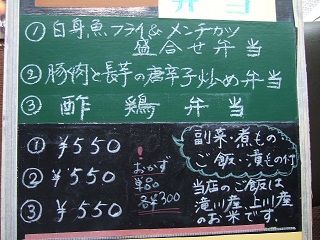 弁当
①白身魚フライ&メンチカツ
盛合せ弁当
②豚肉と長芋の唐辛子炒め弁当
③酢鶏弁当
①¥550
②¥550
③¥550
おかず
各¥300
副菜・煮もの
ご飯・漬もの付
当店のご飯は
滝川産、上川産
のお米です。